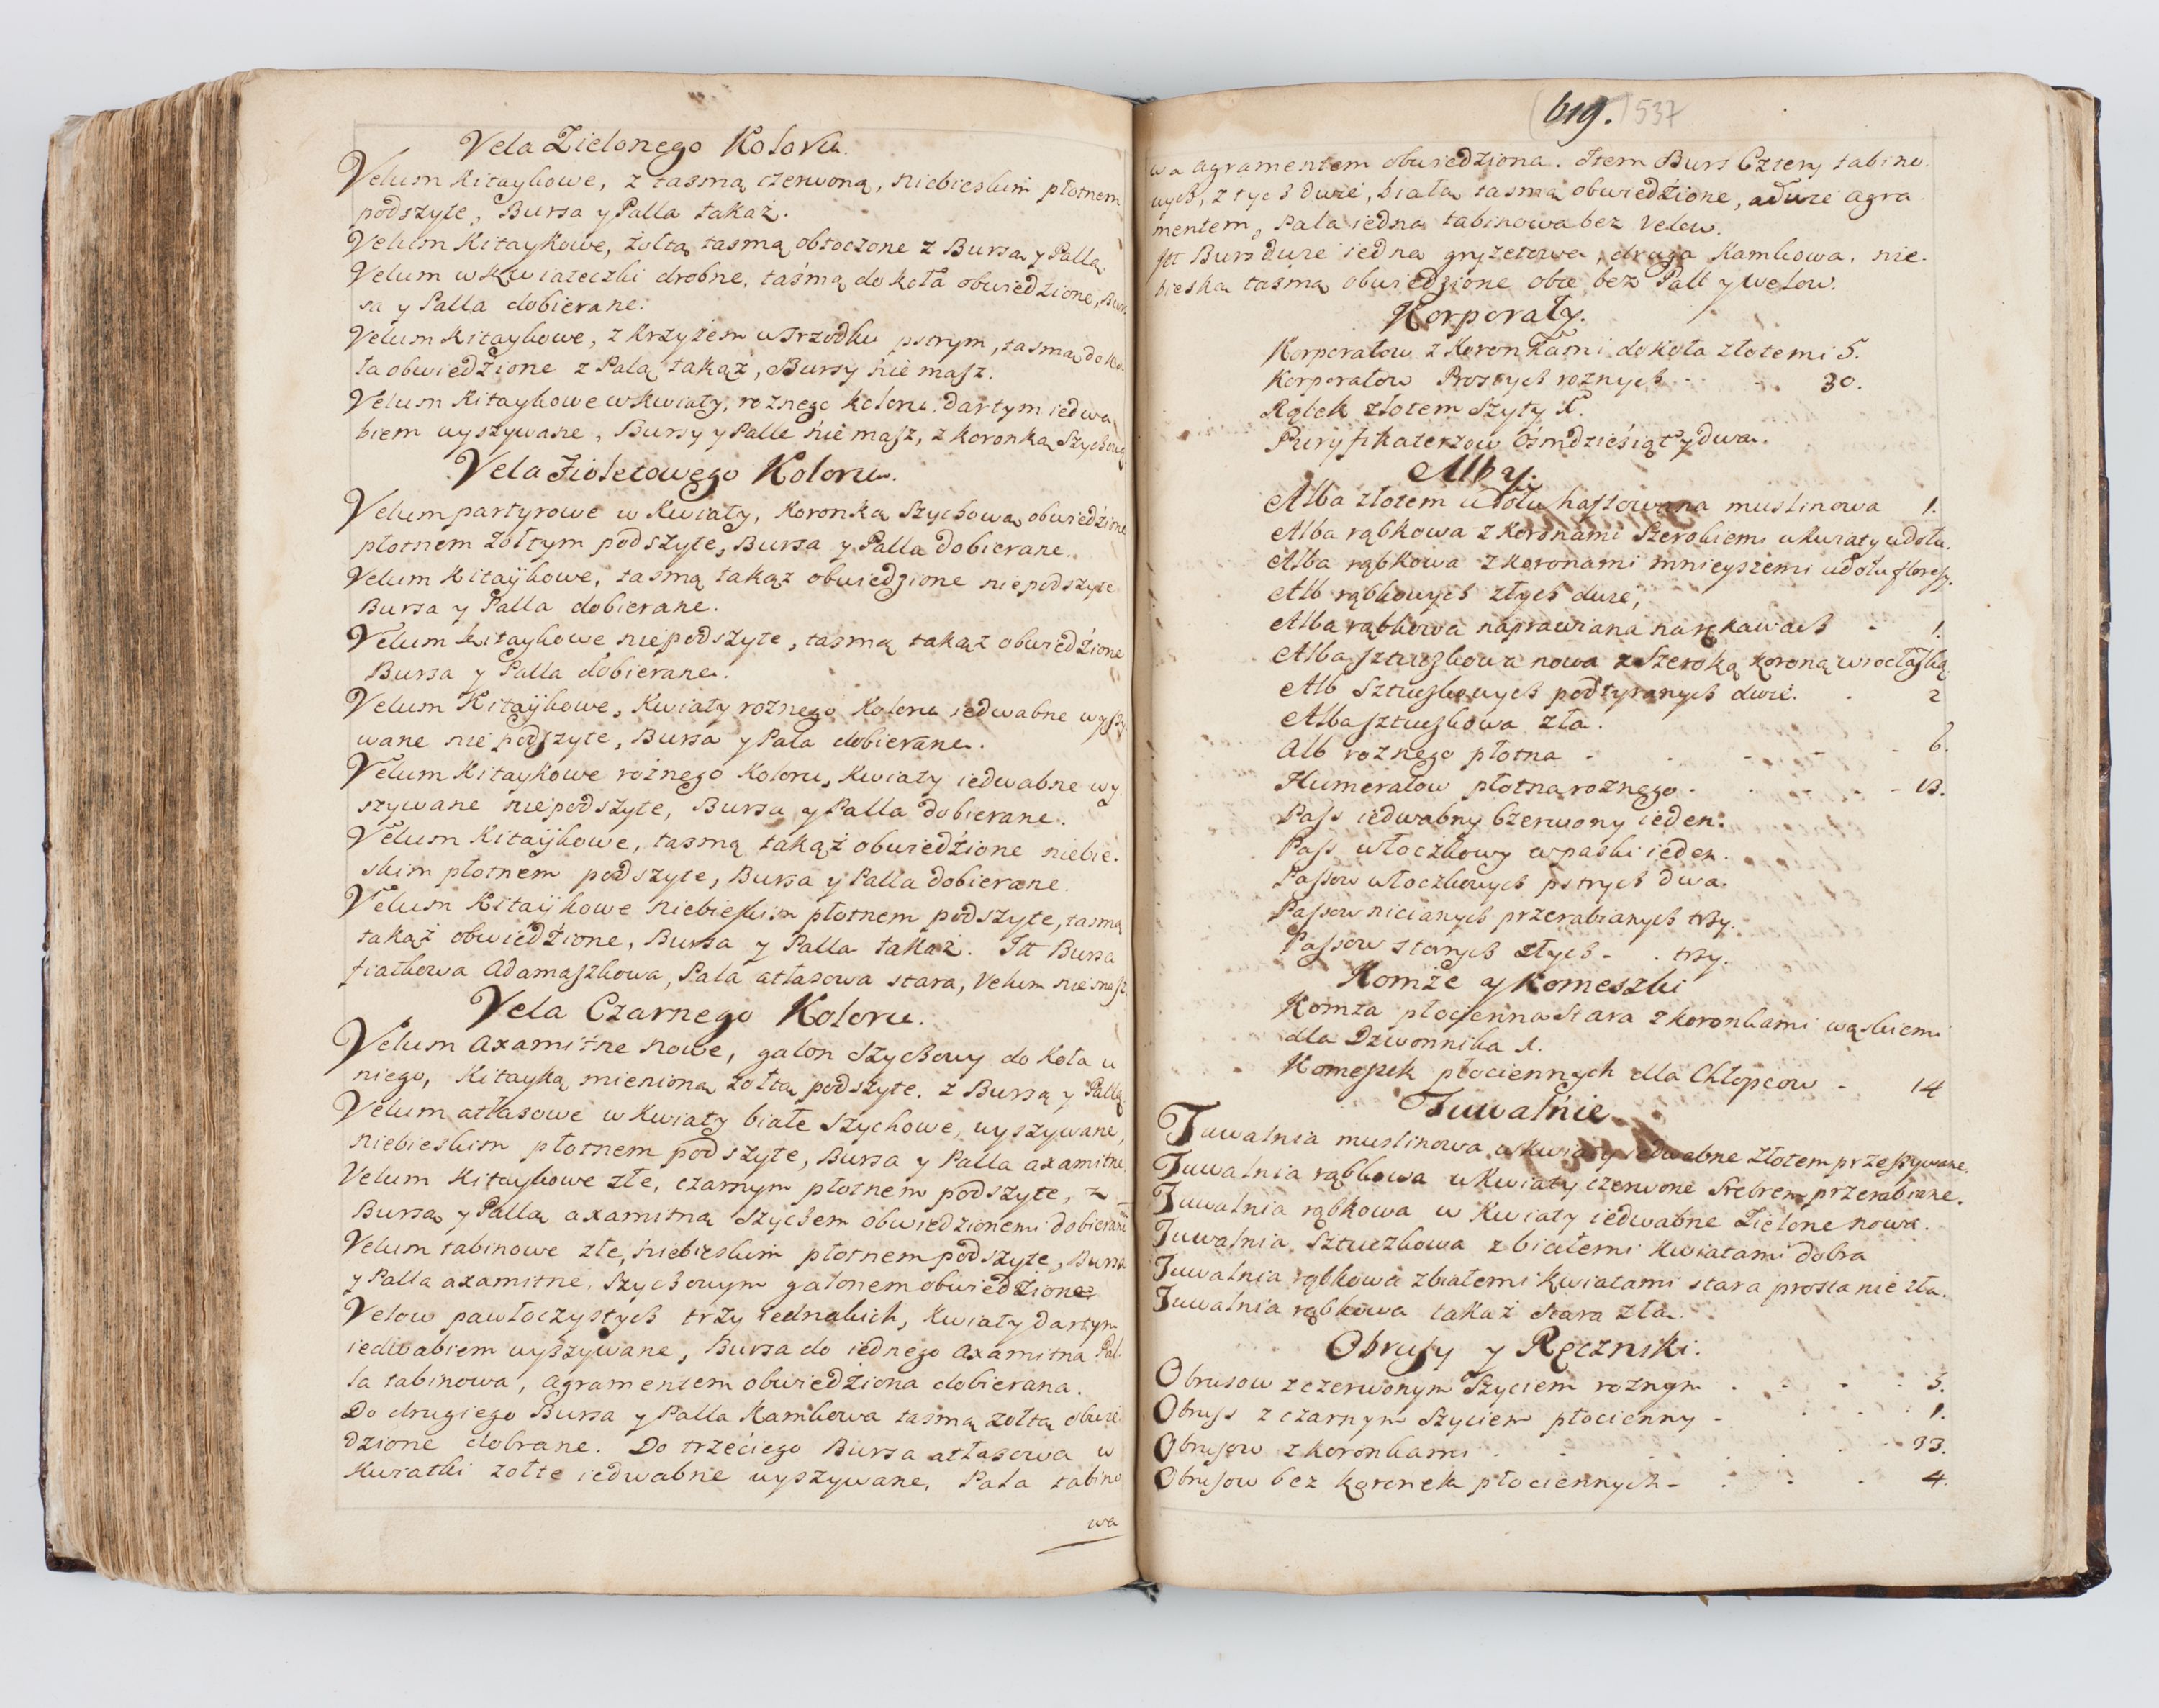 Vela Zielonego Koloru.
Velum Kitaykowe, z tasmą czerwoną, niebieskim płotnem
podszyte, Bursa y Palla takaż.
Velum Kitaykowe, żołtą tasmą obtoczone z Bursą y Pallą
Velum w Kwiateczki drobne, taśmą do koła obwiedzione, Bur.
sa y Palla dobierane.
Velum Kitaykowe, z Krzyżem w srzodku pstrym, tasmą do ko.
ła obwiedzione z Palą takąż, Bursy nie masz.
Velum Kitaykowe w Kwiaty, roznego koloru, dartym iedwa
biem wyszywane, Bursy y Palle nie masz, z koronką Szychową
Vela Fioletowego Koloru.
Velum partyrowe w Kwiaty, Koronką Szychową obwiedzione
płotnem żołtym podszyte, Bursa y Palla dobierane.
Velum Kitaykowe, tasmą takąż obwiedzione niepodszyte
Bursa y Palla dobierane.
Velum kitaykowe niepodszyte, tasmą takąż obwiedzione
Bursa y Palla dobierane.
Velum Kitaykowe, Kwiaty roznego Koloru iedwabne wyszy
wane niepodszyte, Bursa y Pala dobierane.
Velum Kitaykowe rożnego Koloru, Kwiaty iedwabne wy.
szywane niepodszyte, Bursa y Palla dobierane.
Velum Kitaykowe, tasmą takąż obwiedzione niebie.
skim płotnem podszyte, Bursa y Palla dobierane.
Velum Kitaykowe niebieskim płotnem podszyte, tasmą
takąż obwiedzione, Bursa y Palla takaż. It Bursa
fiałkowa Adamaszkowa, Pala atłasowa stara, Velum nie masz.
Vela Czarnego Koloru.
Velum axamitne nowe, galon szychowy do koła u
niego, Kitayką mienioną żołtą podszyte. z Bursą y Pallą
Velum atłasowe w Kwiaty białe szychowe, wyszywane,
niebieskim płotnem podszyte, Bursa y Palla axamitne,
Velum Kitaykowe złe, czarnym płotnem podszyte, z
Bursą y Pallą axamitną Szychem obwiedzionemi dobierane
Velum tabinowe złe, niebieskim płotnem podszyte, Bursa
y Palla axamitne, szychowym galonem obwiedzione
Velow pawłoczystych trzy iednakich, Kwiaty dartym
iedwabiem wyszywane, Bursa do iednego axamitna Pal.
la tabinowa, agramentem obwiedziona dobierana.
Do drugiego Bursa y Palla Kamkowa tasmą żołtą obwie
dzione dobrane. Do trzeciego Bursa atłasowa w
Kwiatki żołte iedwabne wyszywane, Pala tabino
wa
619. 537
wa agramentem obwiedziona. Item Burs Cztery tabino.
wych, z tych dwie, białą tasmą obwiedzione, a dwie agra
mentem, Pala iedna tabinowa bez Velu.
It Burs dwie iedna gryzetowa, druga Kamkowa, nie.
bieską taśmą obwiedzione obie bez Pall y Welow.
Korporały.
Korporałow z Koronkami do koła złotemi 5.
Korporałow Prostych roznych - - 30.
Rąbek złotem Szyty 1.
Puryfikaterzow Ośmdziesiąt y dwa.
Alby.
Alba złotem u dołu haftowana muslinowa 1.
Alba rąbkowa z Koronami Szerokiemi w kwiaty u dołu.
Alba rąbkowa z Koronami mnieyszemi u dołu
Alb rąbkowych złych dwie,
Alba rąbkowa naprawiana na rękawach - 1.
Alba sztuczkowa nowa z Szeroką koroną wrocłaską
Alb Sztuczkowych podtyranych dwie. . 2
Alba sztuczkowa zła.
Alb roznego płotna - . - - 6.
Humerałow płotna roznego - . - - 13.
Pass iedwabny Czerwony ieden.
Pass włoczkowy w paski ieden.
Passow włoczkowych pstrych dwa.
Passow nicianych przerabianych trzy.
Passow starych złych - . trzy.
Komże y Komeszki
Komża płocienna stara z koronkami wąskiemi
dla Dzwonnika 1.
Komeszek płociennych dla Chłopcow - 14
Tuwalnie
Tuwalnia muslinowa w kwiaty iedwabne złotem przeszywane.
Tuwalnia rąbkowa w Kwiaty czerwone Srebrem przerabiane.
Tuwalnia rąbkowa w Kwiaty iedwabne Zielone nowa.
Tuwalnia Sztuczkowa z białemi kwiatami dobra
Tuwalnia rąbkowa z białemi kwiatami stara prosta nie zła.
Tuwalnia rąbkowa takaż stara zła.
Obrusy y Ręczniki.
Obrusow z czerwonym Szyciem roznym . - - - 5.
Obruss z czarnym Szyciem płocienny - . . - 1.
Obrusow z koronkami . . . . - 33.
Obrusow bez koronek płociennych - . : . 4.